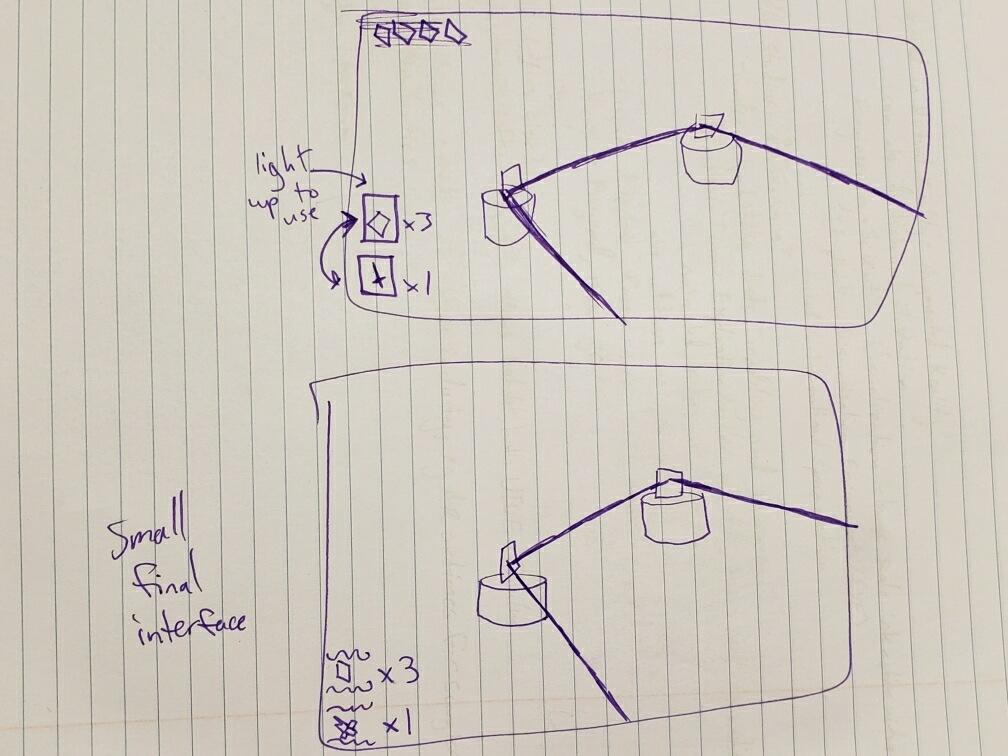 light
up to
use
x3
x1
small
final
interface
x3
x1